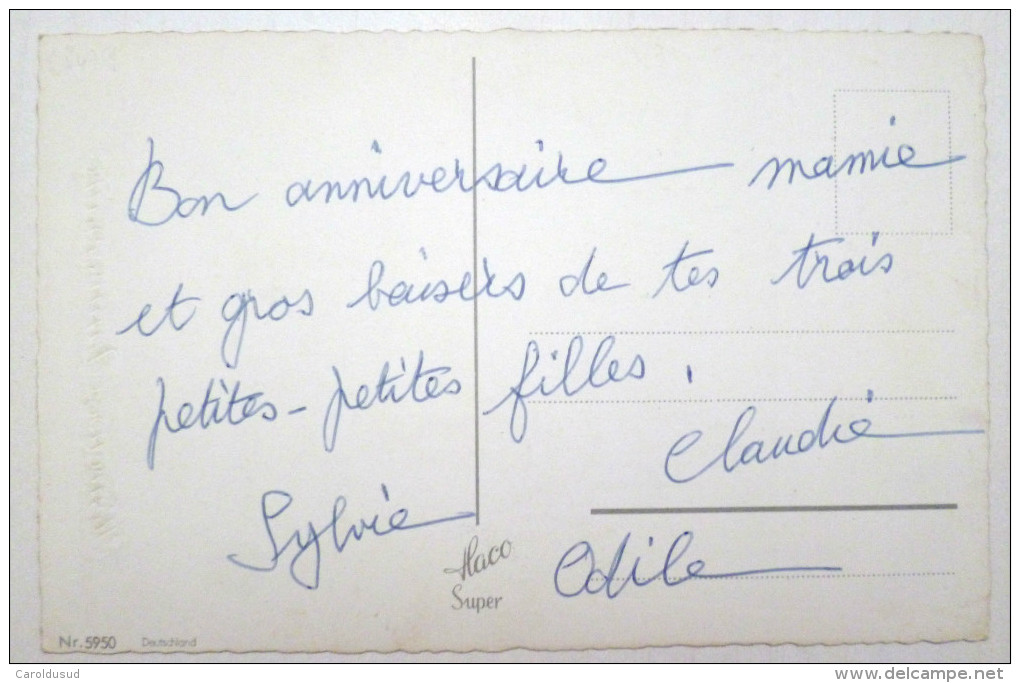 Bon anniversaire mamie
et gros baisers de tes trois
petites-petites filles.
Claudie
Sylvie
Odile
Haco
Super
Nr. 5950 Deutschland
Caroldusud
www.delcampe.net